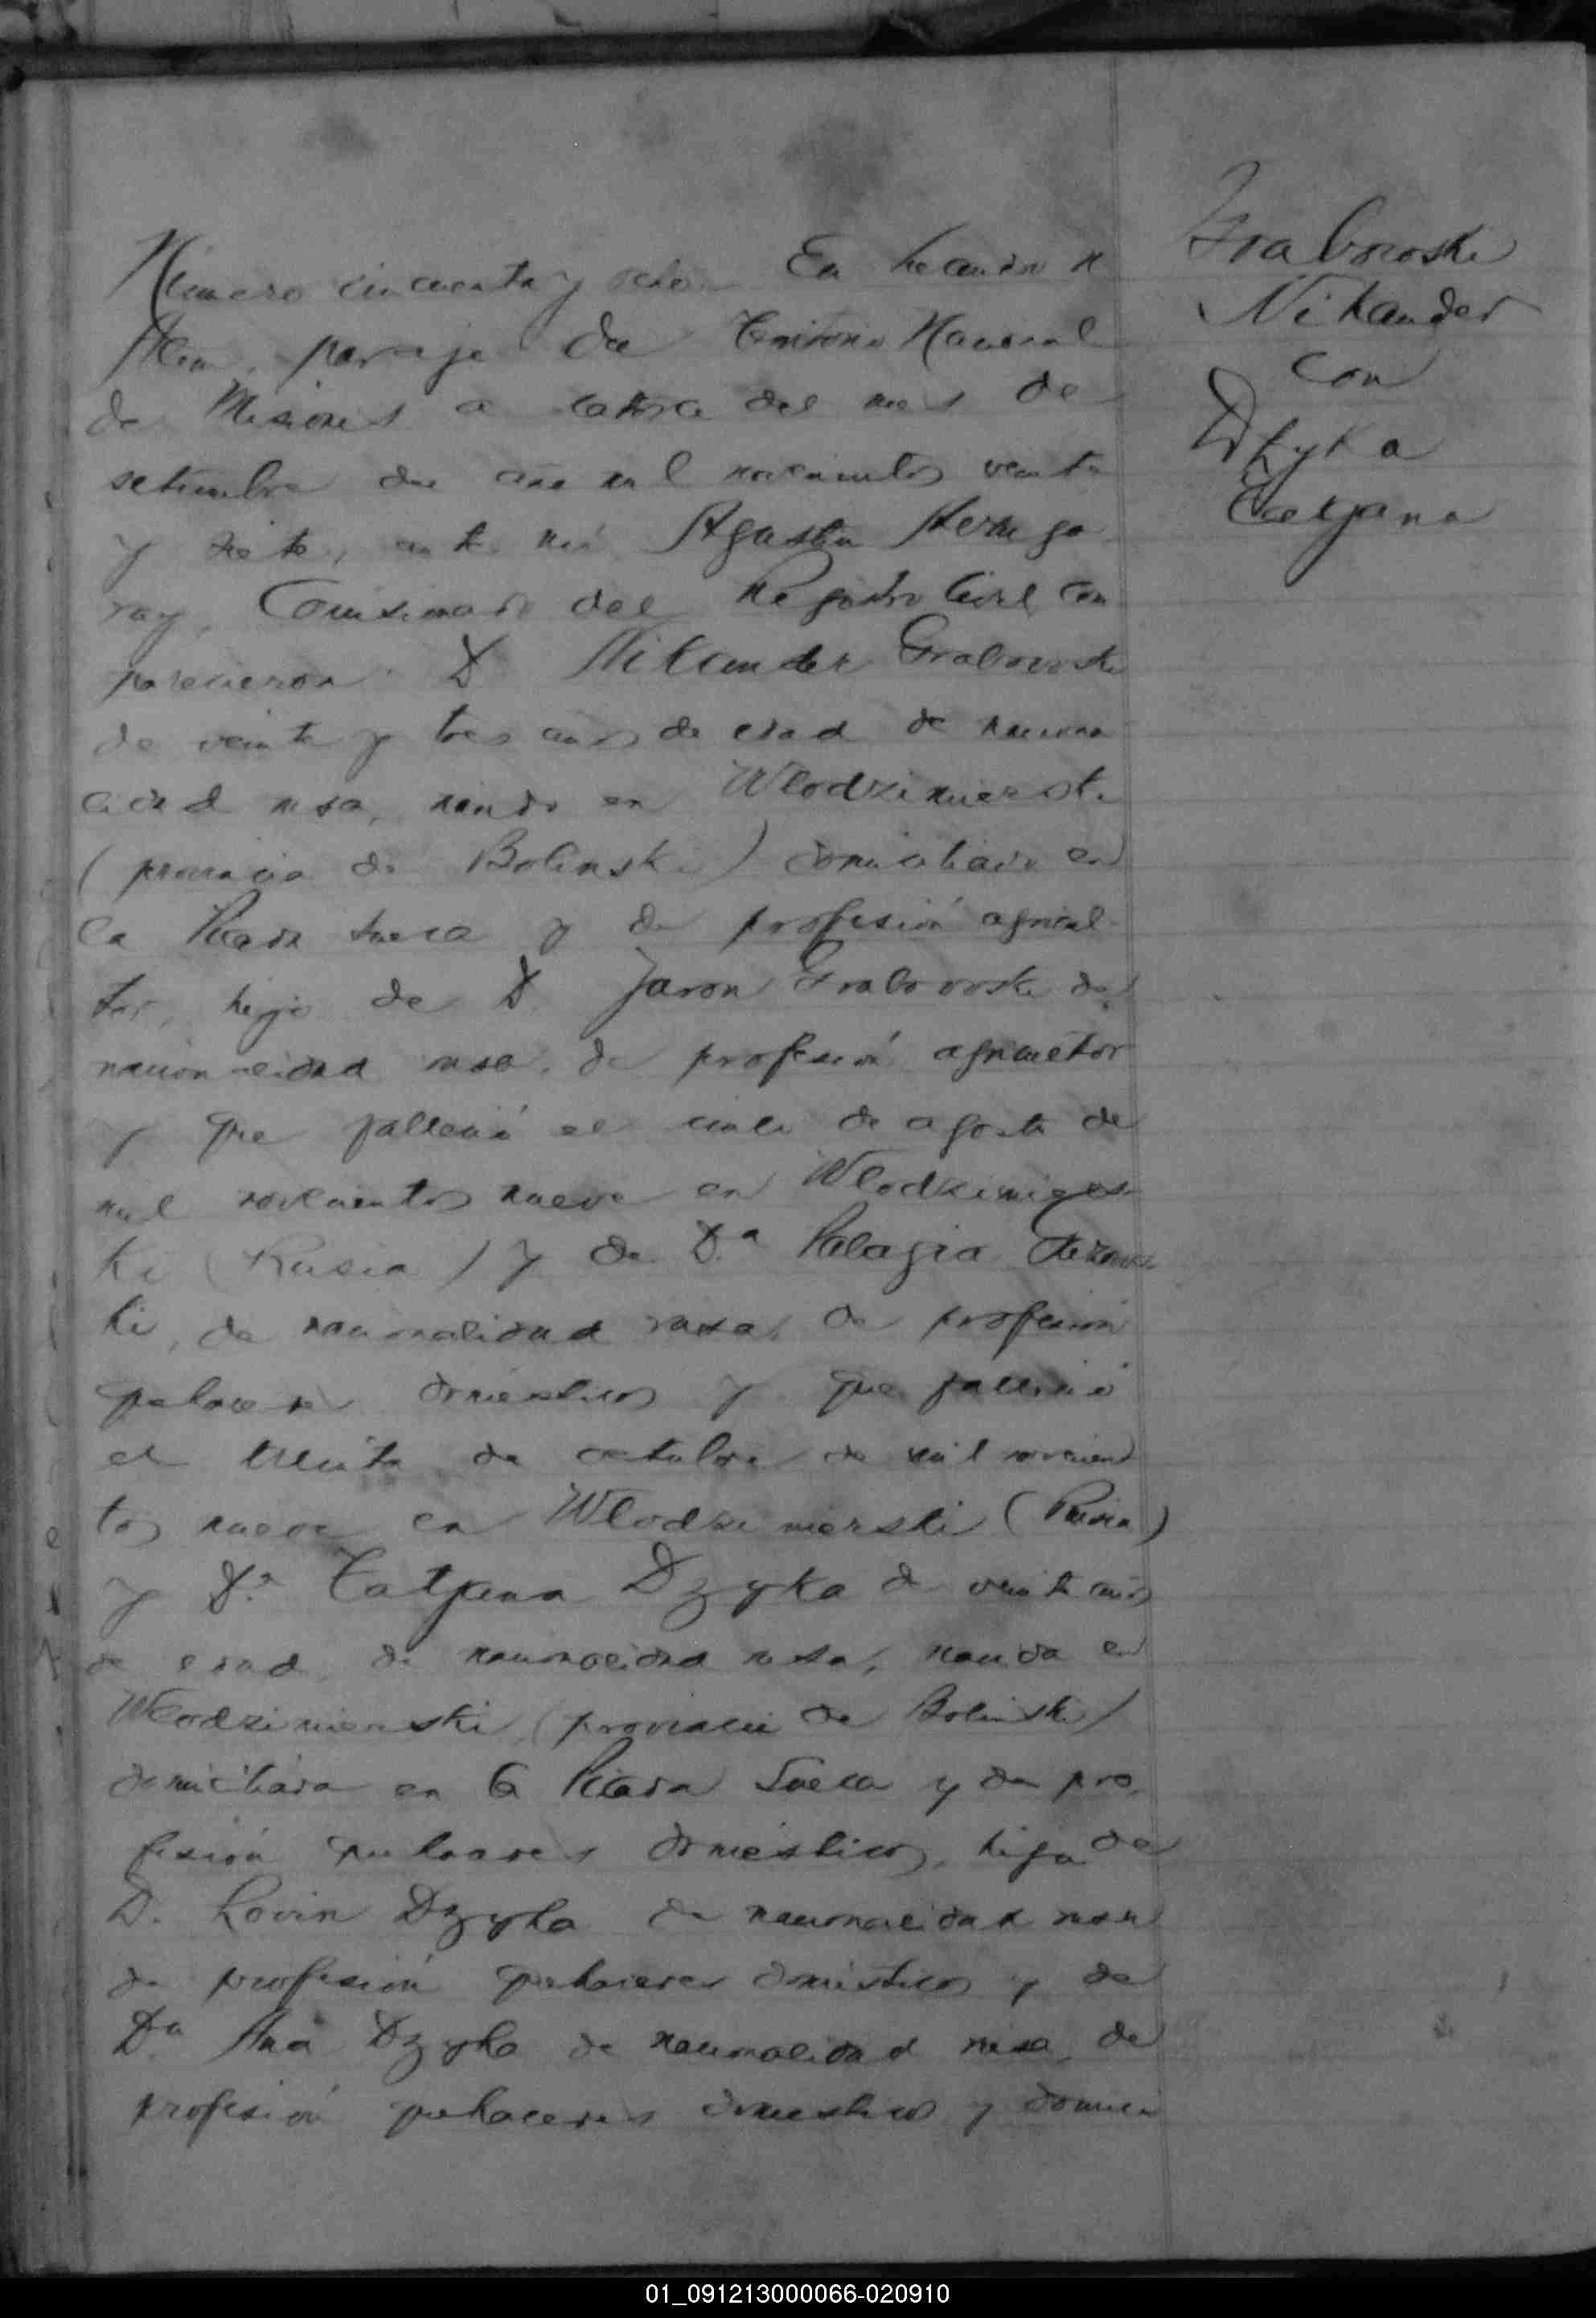 Número cincuenta y ocho. En Leandro N
Alem, paraje del Territorio Nacional
de Misiones a catorce del mes de
setiembre del año mil novecientos veinte
y siete, ante mí Agustin
ray, Comisionado del Registro Civil com
parecieron D Nikander Grabowski
de veinte y tres años de edad de naciona
lidad rusa, nacido en Wlodzimierski
(provincia de Bolinski) domiciliado en
la Picada Sueca y de profesión agricul-
tor, hijo de D. Jaron Grabowski de
nacionalidad rusa, de profesión agricultor
y que falleció el de agosto de
mil novecientos nueve en Wlodzimiers
ki (Rusia) y de Dª Pelagia
ki, de nacionalidad rusa, de profesión
quehaceres domésticos y que falleció
el treinta de octubre de mil novecien
tos nueve en Wlodzimierski (Rusia)
y Dª Tatjana Dzyka de veinte años
de edad, de nacionalidad rusa, nacida en
Wlodzimierski (provincia de Bolinski)
domiciliada en la Picada Sueca y de pro
fesión quehaceres domésticos, hija de
D. Lovin Dzyka de nacionalidad rusa
de profesión quehaceres domésticos y de
Dª Ana Dzyka de nacionalidad rusa, de
profesión quehaceres domesticos y domici
Grabowski
Nikander
con
Dzyka
Tatjana
01_091213000066-020910